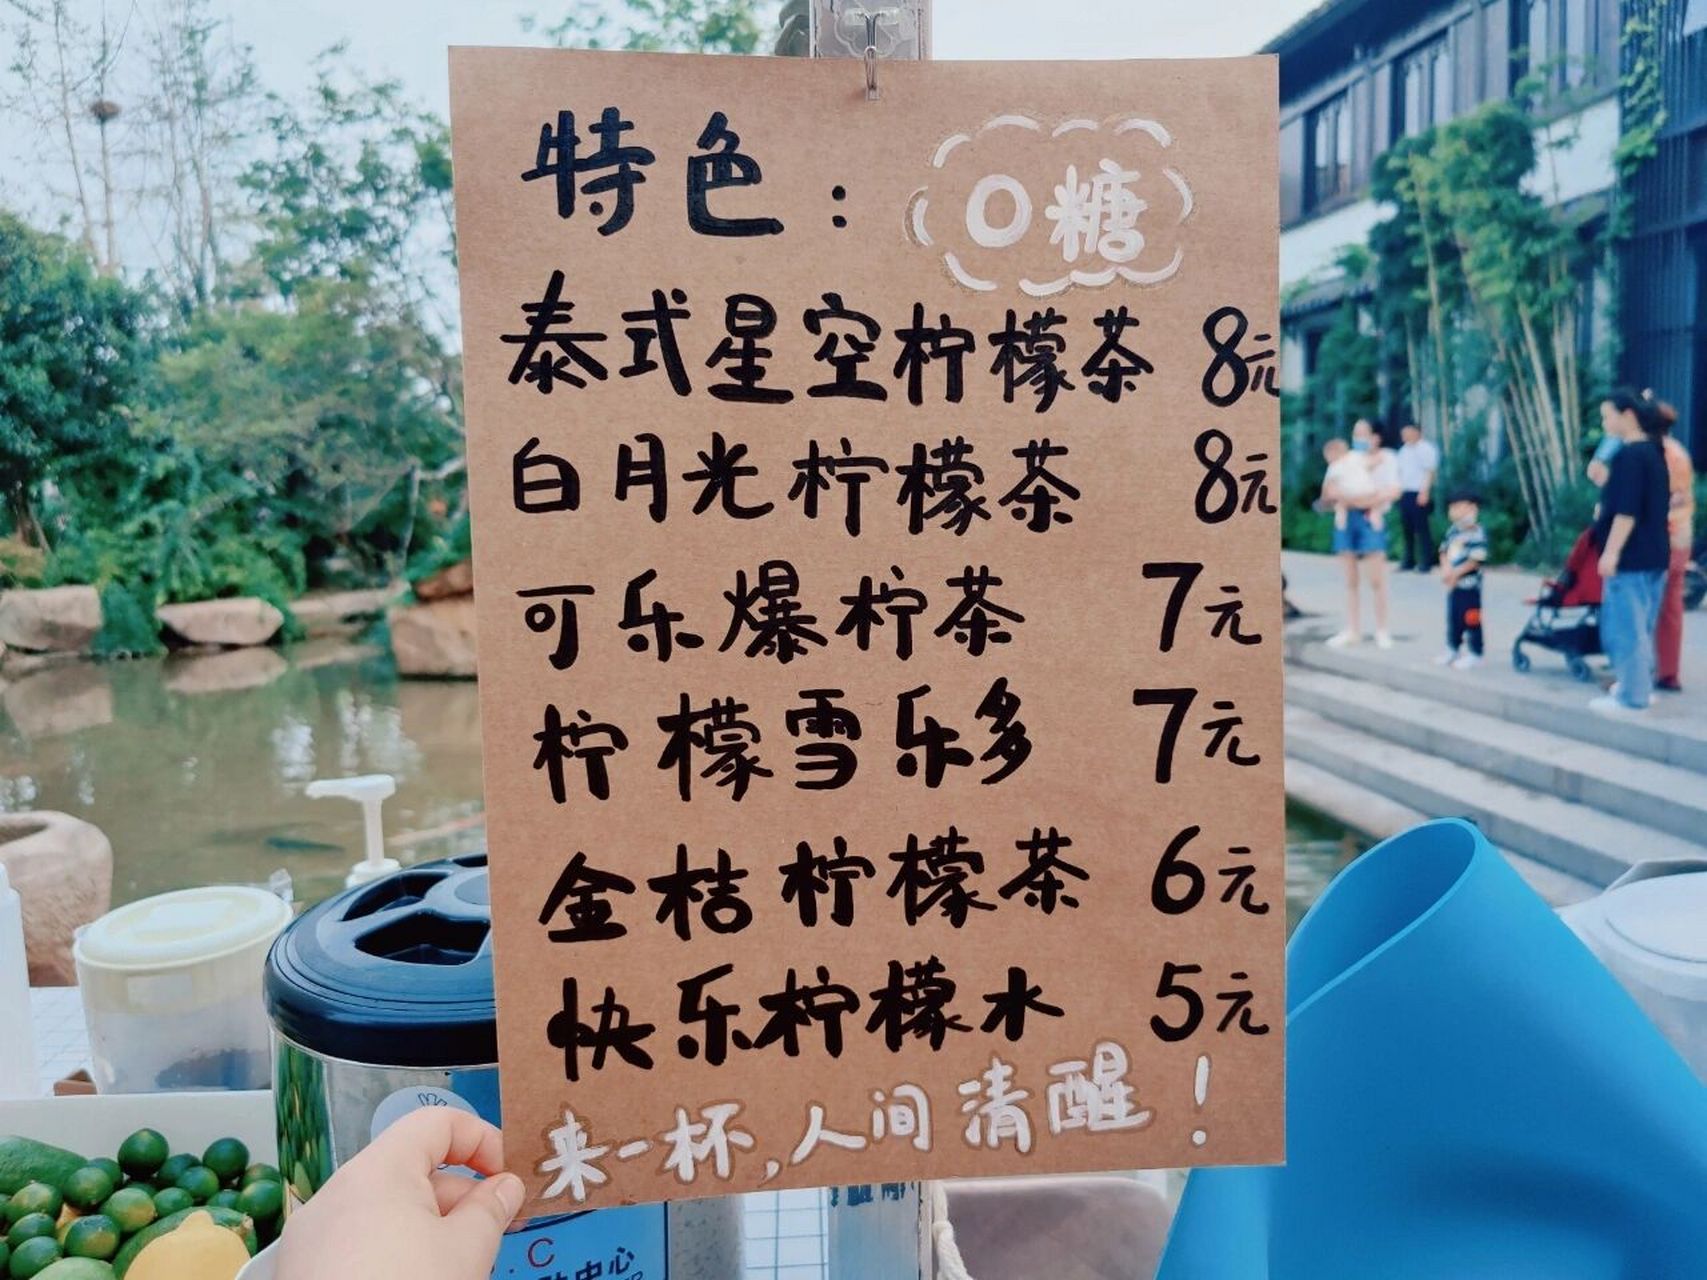 特色：0糖
泰式星空柠檬茶 8元
白月光柠檬茶 8元
可乐爆柠茶 7元
柠檬雪乐多 7元
金桔柠檬茶 6元
快乐柠檬水 5元
来一杯,人间清醒！
C
中心